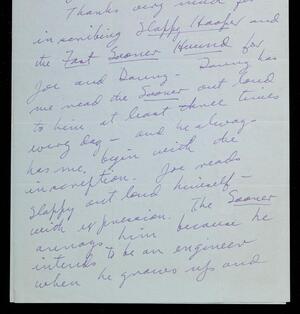 Thanks very much for
inscribing Slappy Hooper and
the Fast Sooner Hound for
Joe and Danny. Danny has
me read the Sooner out loud
to him at least three times
every day — and he always
has me begin with the
inscription. Joe reads
Slappy out loud himself —
with expression. The Sooner
him because he
intends to be an engineer
when he grows up and